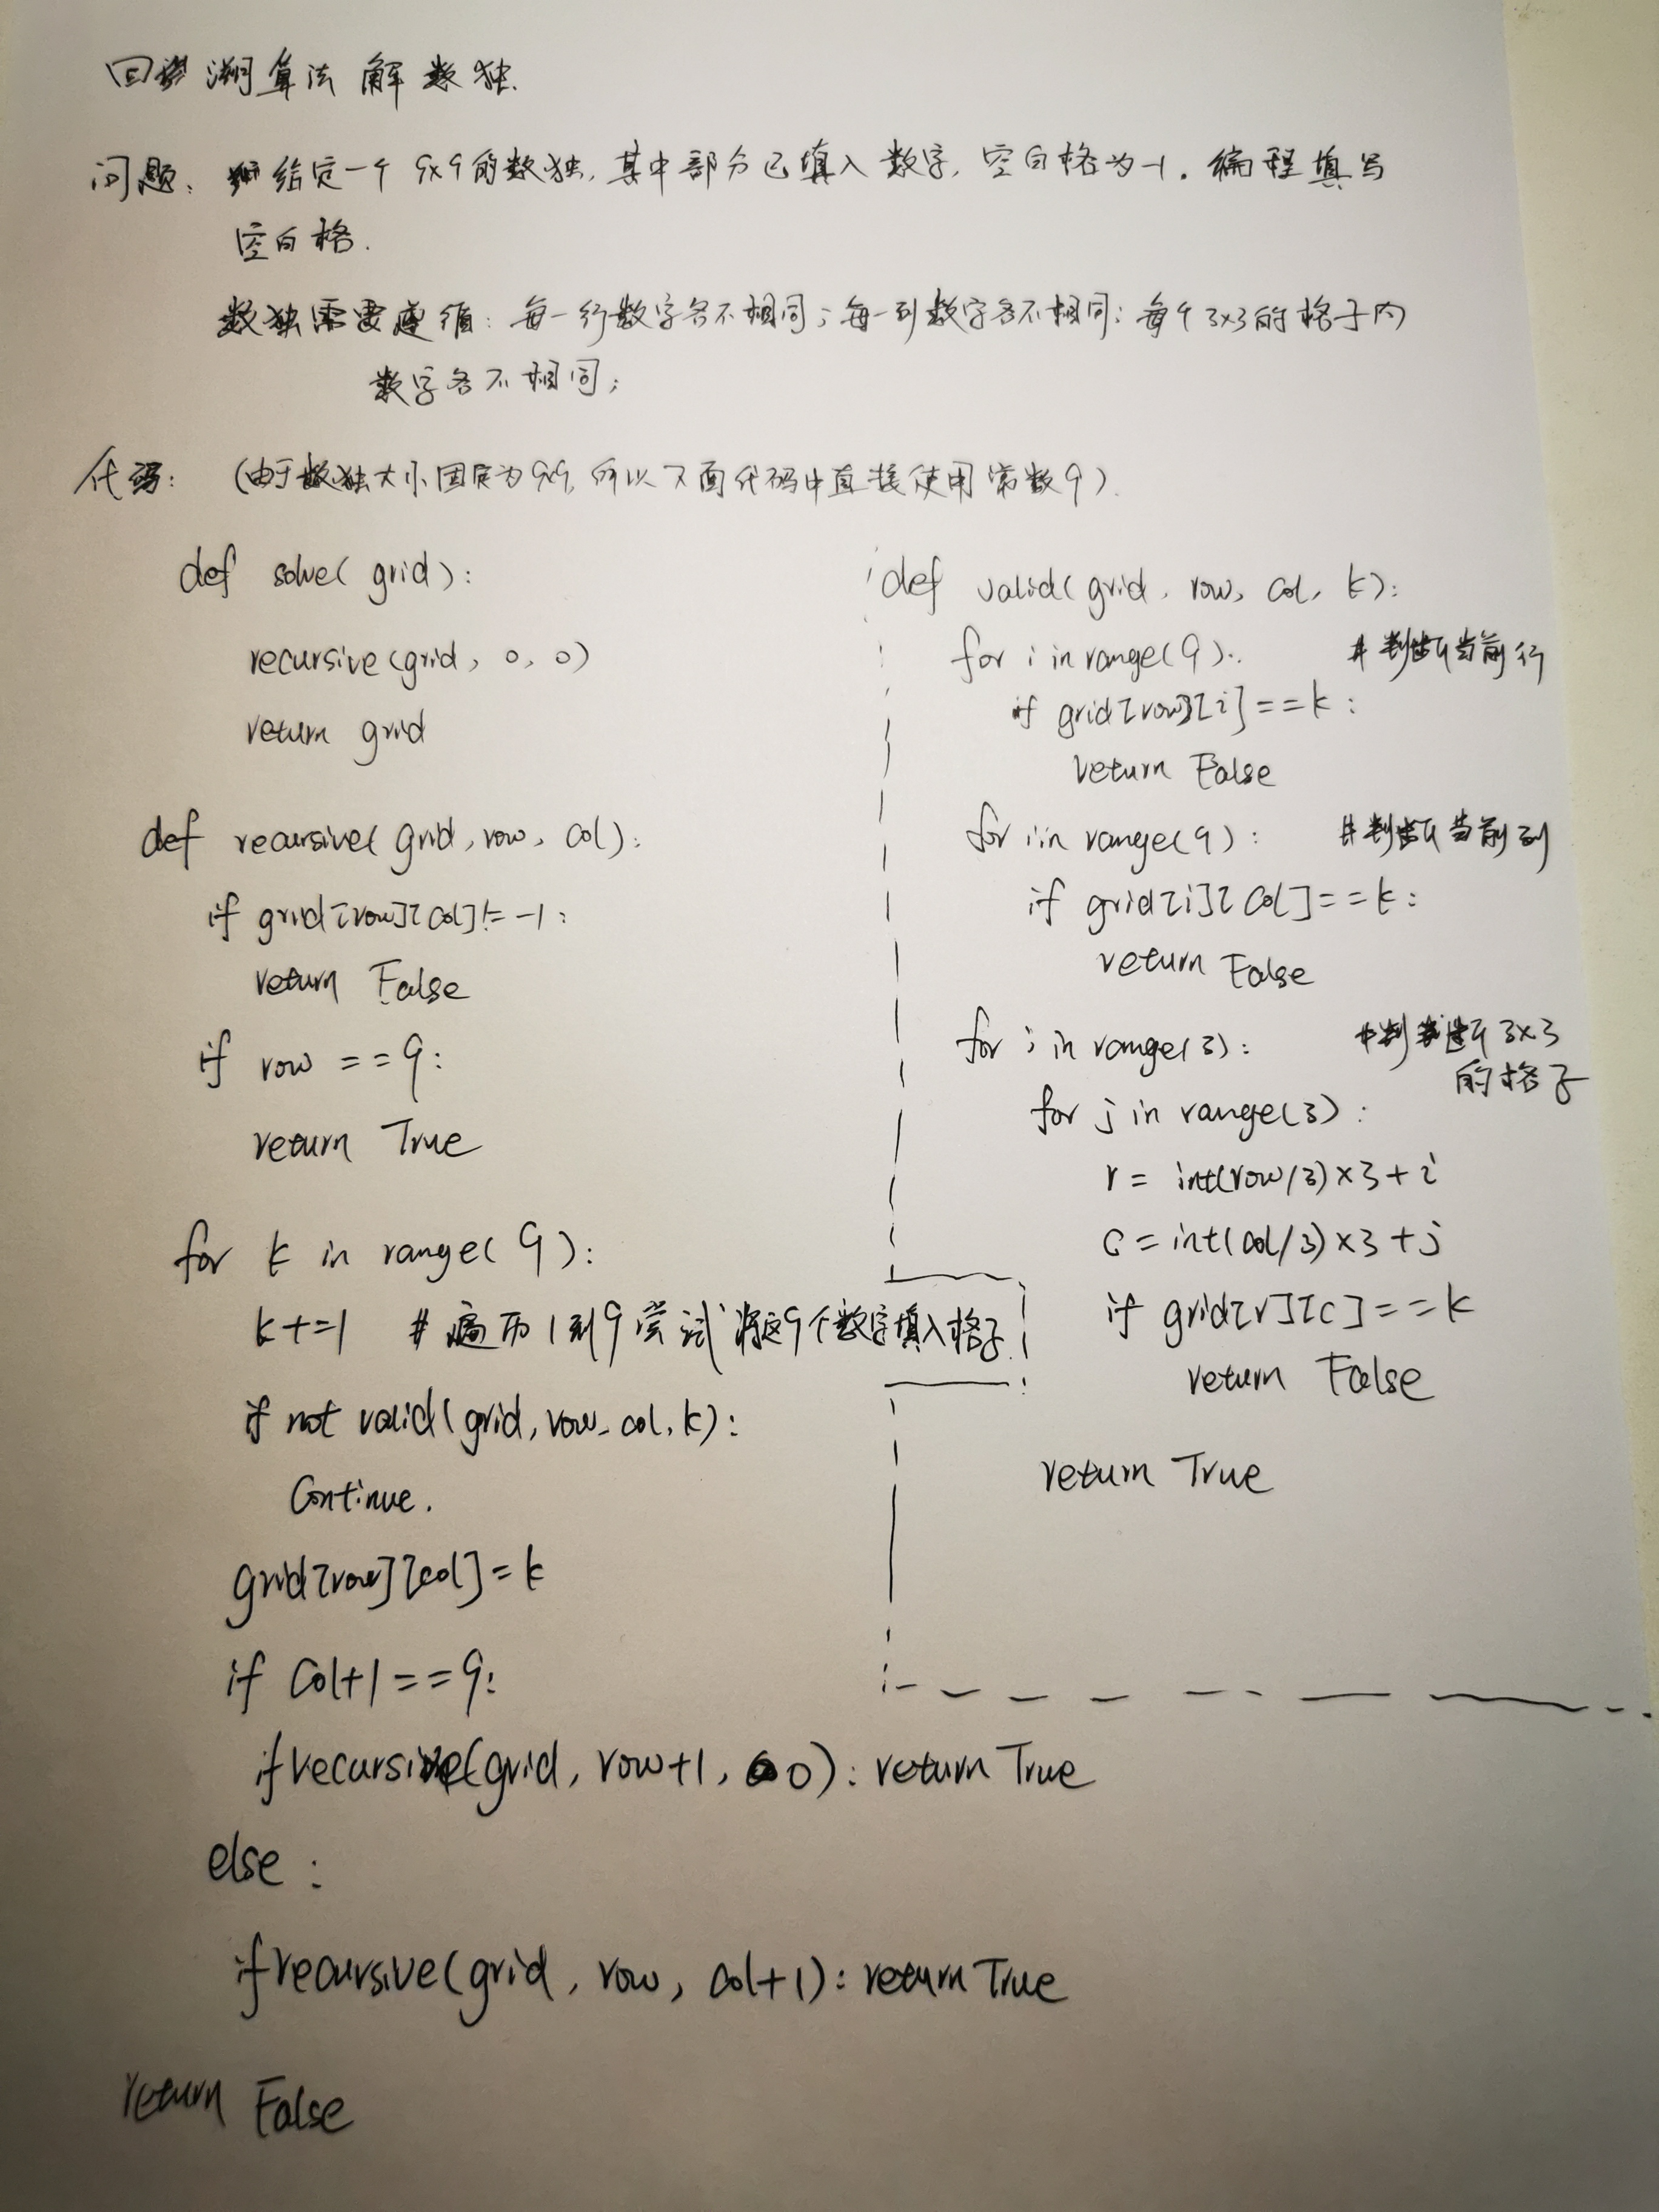 回溯算法解数独.
问题: 给定一个9x9的数独,其中部分已填入数字,空白格为-1.编程填写
空白格.
数独需要遵循: 每一行数字各不相同;每一列数字各不相同;每个3x3的格子内
数字各不相同;
代码: (由于数独大小固定为9x9,所以下面代码中直接使用常数9).
def solve( grid):
recursive(grid, 0, 0)
return grid
def recursive( grid, row, col):
if grid[row][col]!=-1:
return False
if row ==9:
return True
for k in range( 9):
k+=1 # 遍历1到9尝试将这9个数字填入格子.
if not valid(grid, row, col, k):
Continue.
grid[row][col]=k
if Col+1==9:
if recursive(grid, row+1, 0): return True
else:
if recursive(grid, row, col+1): return True
return False
def valid(grid, row, col, k):
for i in range(9): # 判断当前行
if grid[row][i]==k:
return False
for i in range(9): # 判断当前列
if grid[i][col]==k:
return False
for i in range(3): # 判断3x3
的格子
for j in range(3):
r= int(row/3)×3+i
c=int(col/3)×3+j
if grid[r][c]==k
return False
return True